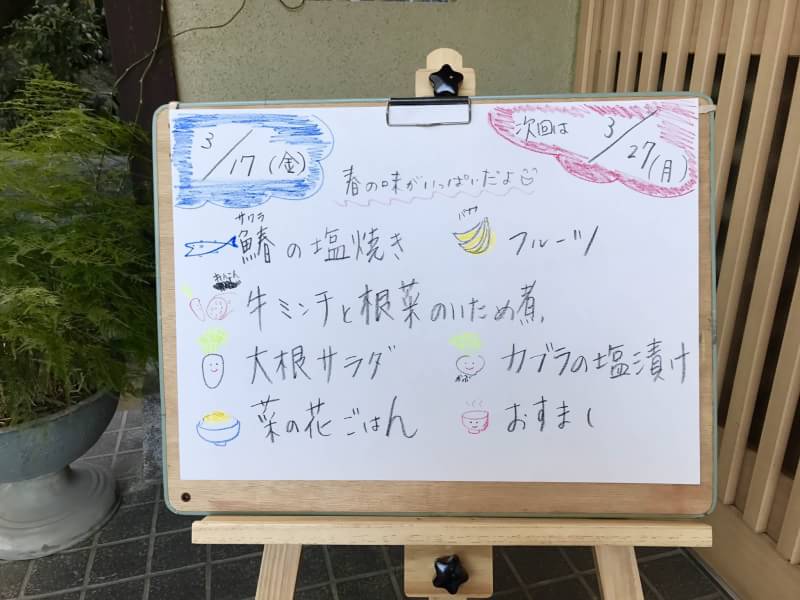 3/17(金)
次回は 3/27(月)
春の味がいっぱいだよ
サワラ
鰆の塩焼き
バナナ
フルーツ
れんこん
牛ミンチと根菜のいため煮
大根サラダ
かぶ
カブラの塩漬け
菜の花ごはん
おすまし